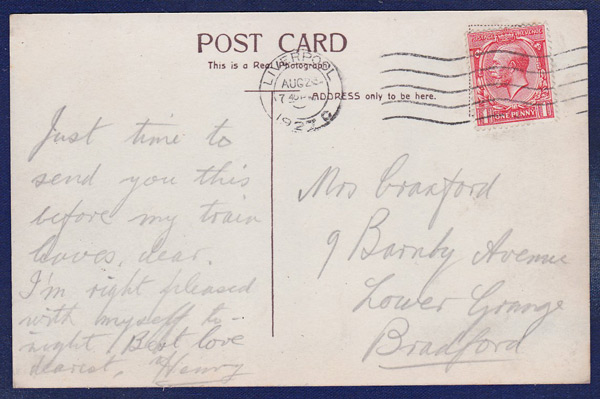 POST CARD
This is a Real Photograph.
ADDRESS only to be here.
LIVERPOOL
AUG 26
7 45 PM
1927
ONE PENNY
Just time to
send you this
before my train
leaves, dear.
I'm right pleased
with myself to-
night. Best love
dearest, Henry
Mrs Craxford
9 Barnby Avenue
Lower Grange
Bradford